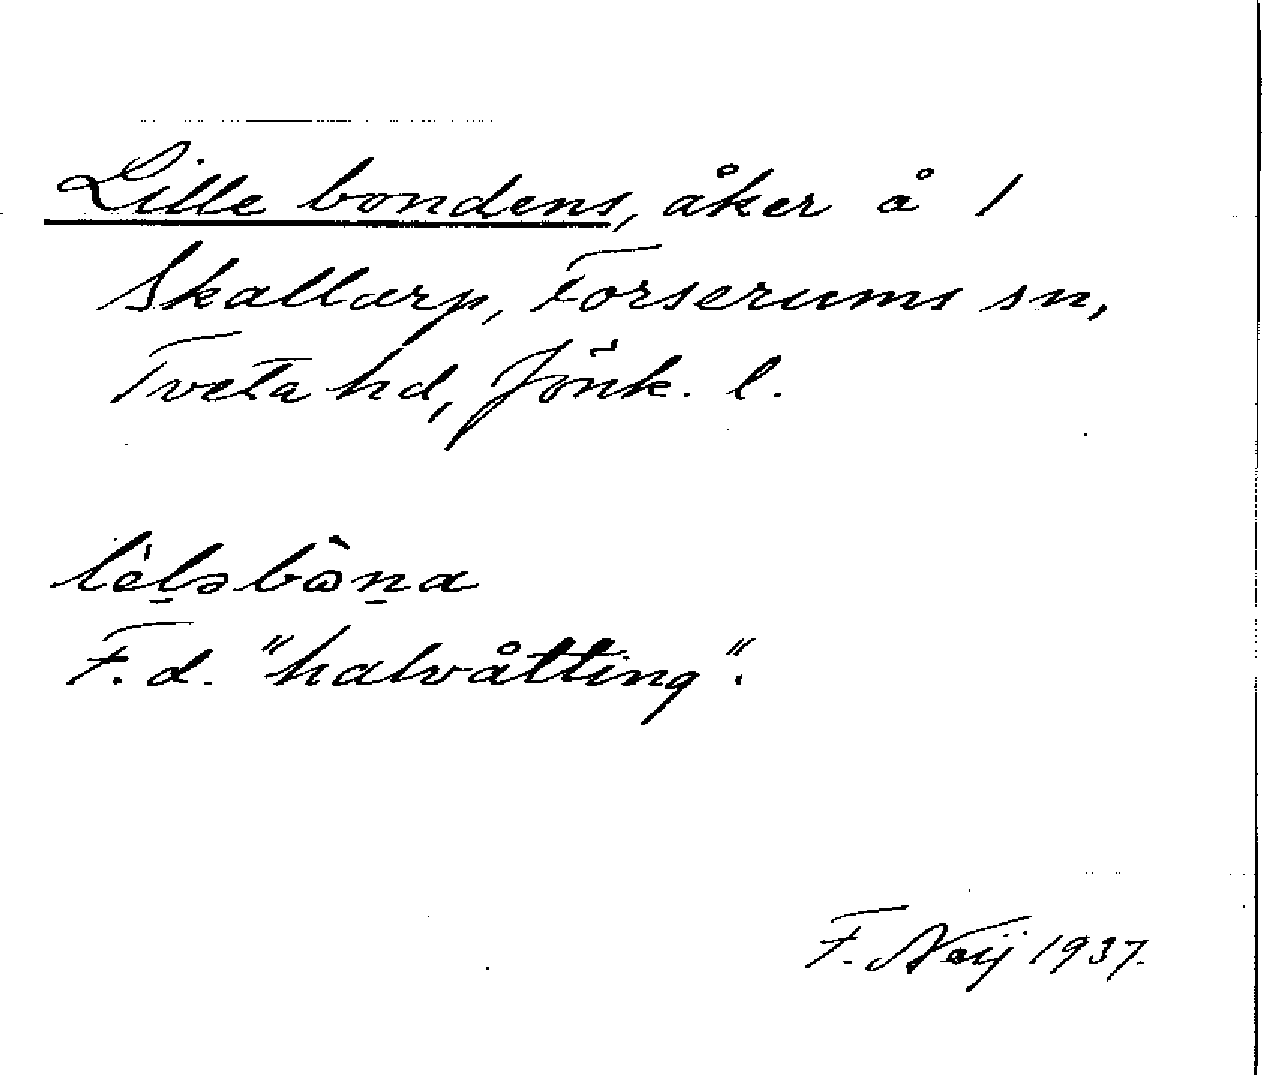 Lille bondens, åker å 1
Skallarp, Forserums sn,
Tveta hd, Jönk. l.
F. d. "halvåtting".
F. Neij 1937.